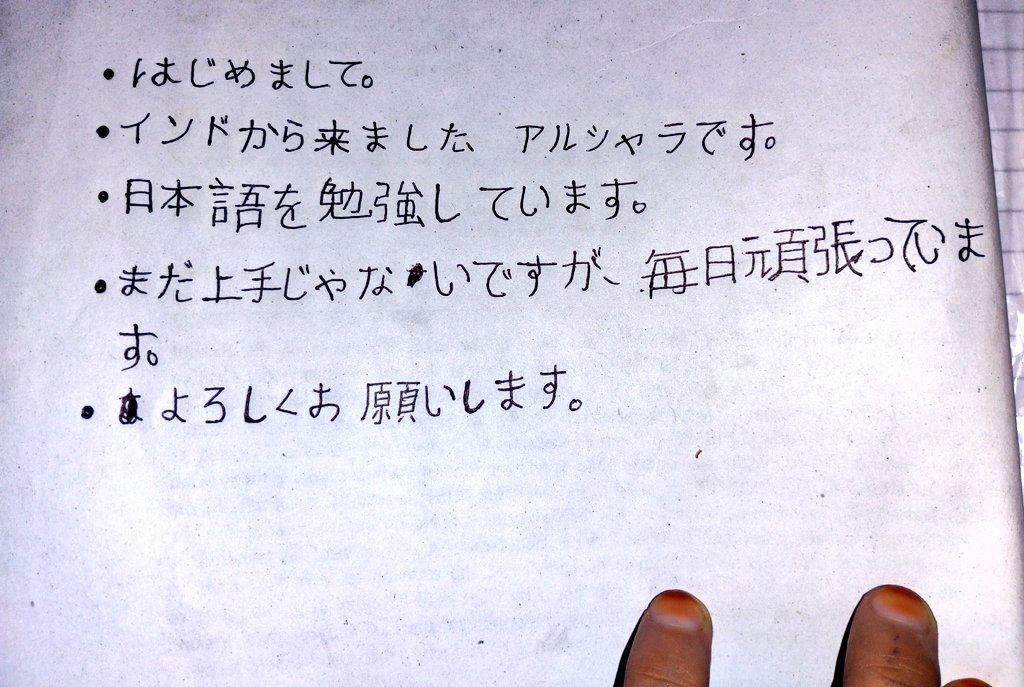 ・はじめまして。
・インドから来ました、アルシャラです。
・日本語を勉強しています。
・まだ上手じゃないですが、毎日頑張っていま
す。
・よろしくお願いします。